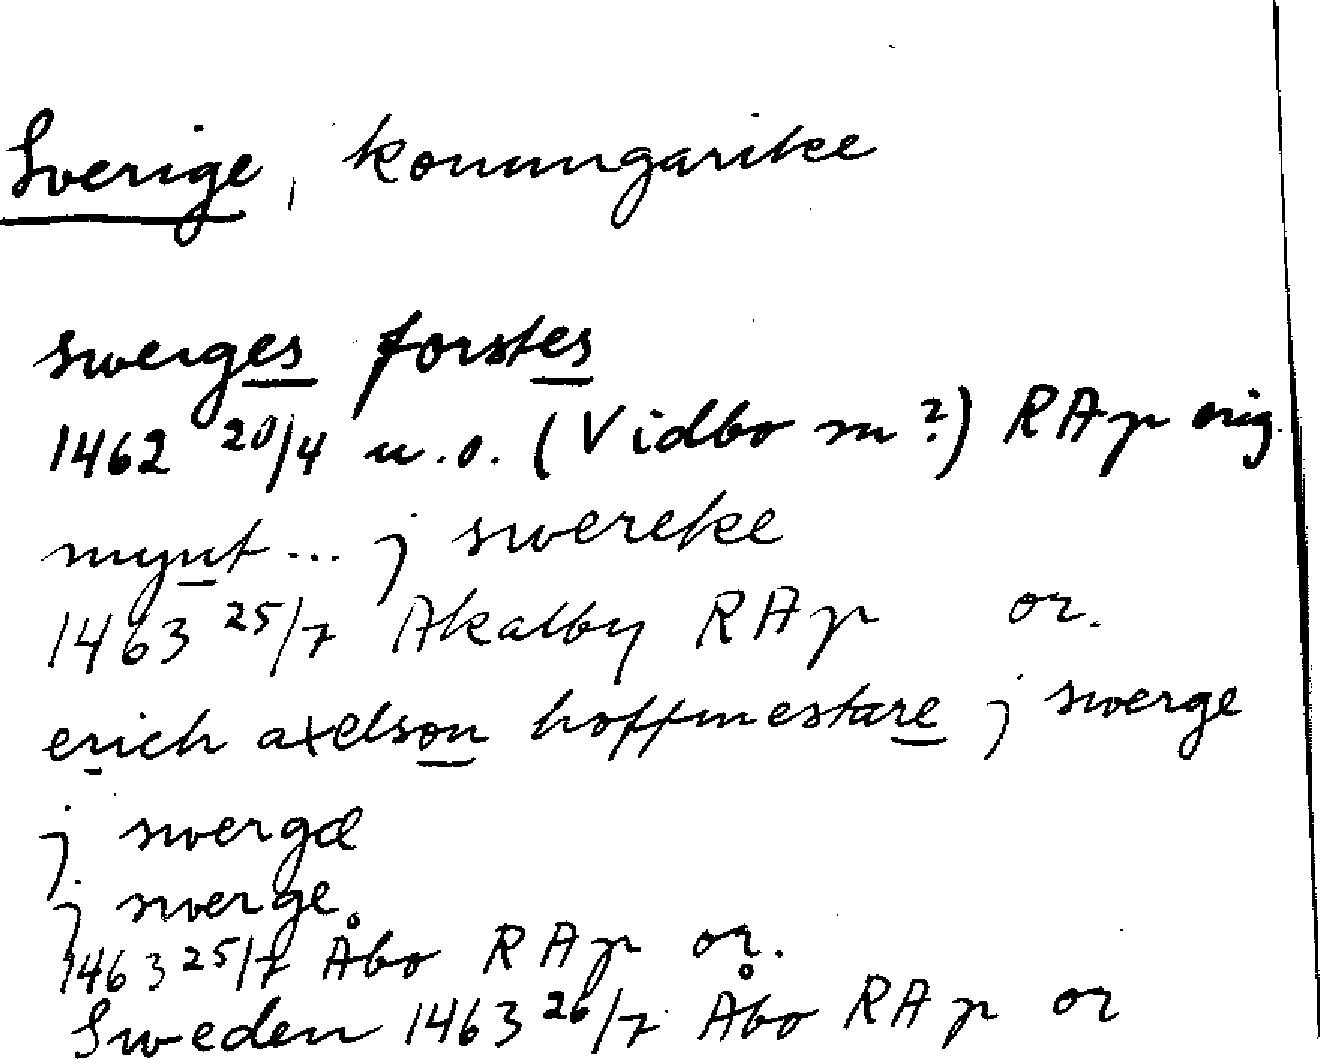 Sverige, konungarike
swerges forstes
1462 20/4 u.o. (Vidbo sn?) RAp orig.
mynt... j swereke
1463 25/7 Akalby RAp or.
erich axelson hoffmestare j swerge
j swergæ
j swerge
1463 25/7 Åbo RAp or.
Sweden 1463 26/7 Åbo RAp or